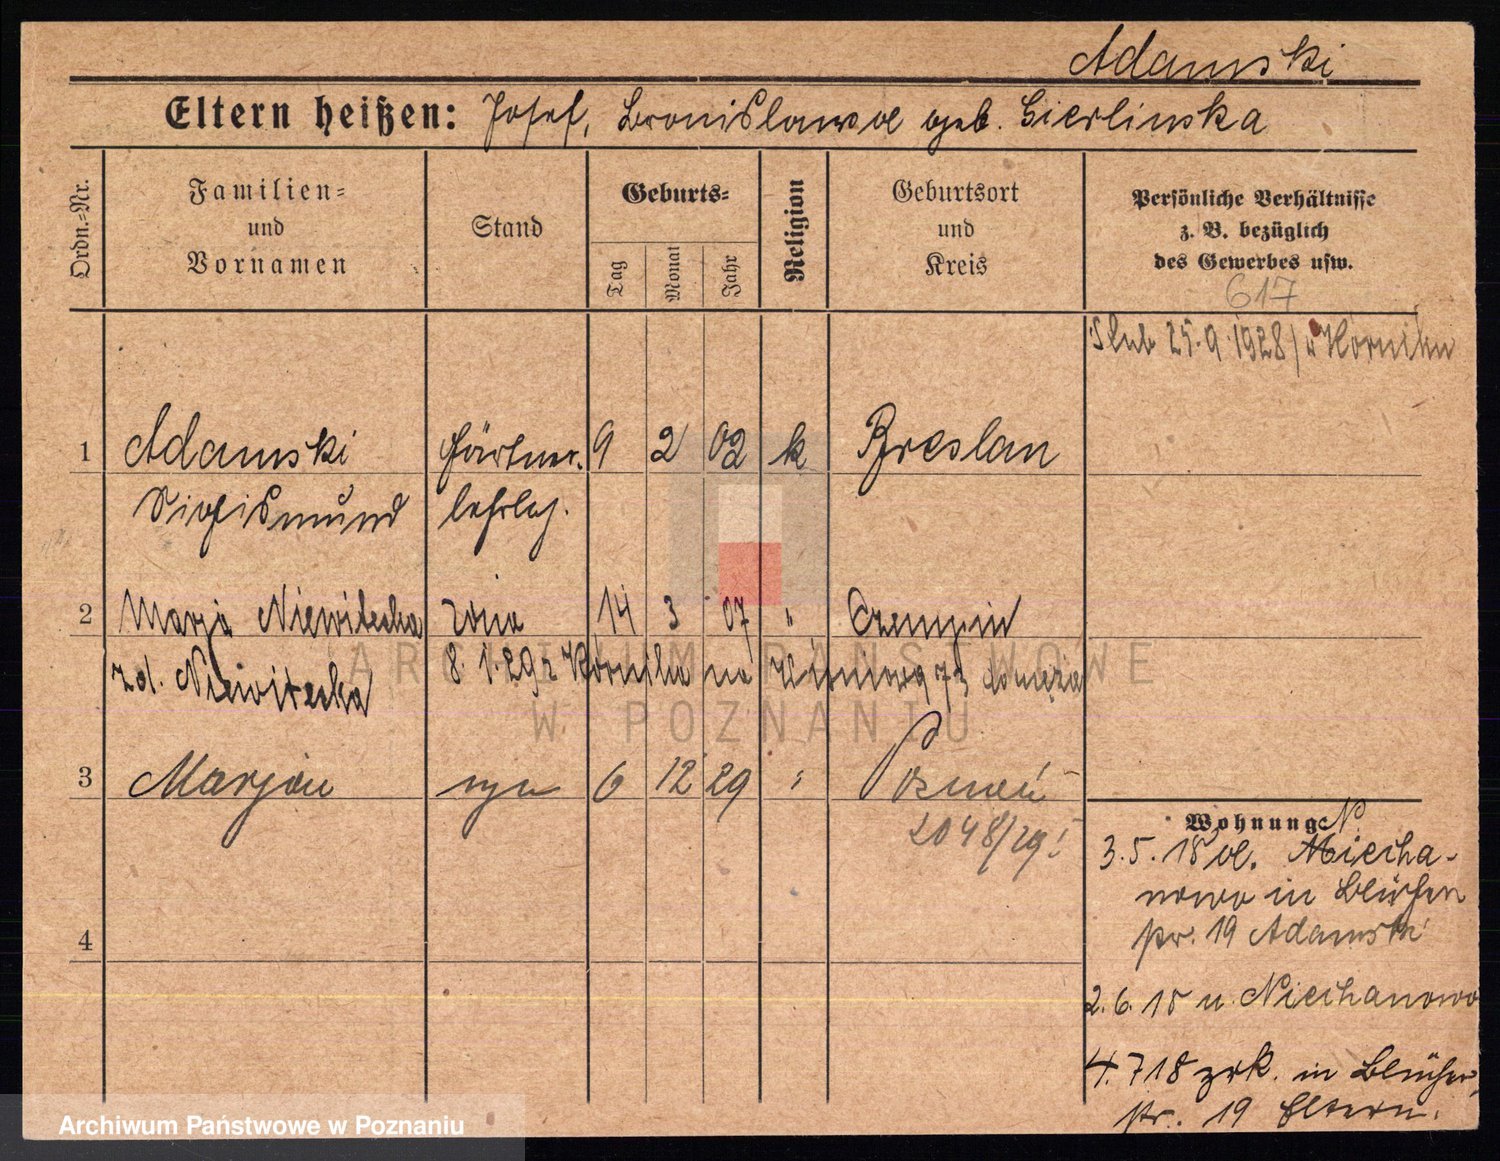 Adamski
Eltern heißen: Josef, Bronislawa geb. Gierlinska
Ordn.=Nr.
Familien=
und
Vornamen
Stand
Geburts=
Tag
Monat
Jahr
Religion
Geburtsort
und
Kreis
Persönliche Verhältnisse
z. B. bezüglich
des Gewerbes usw.
617
Slub 25.9.1928 / w Korniku
1 Adamski Gärtner. 9 2 02 k Breslau
Sigismund lehrlg.
2 Marja Niewitecka żona 14 3 07 " Czempin
zd. Niewitecka 8.1.29 z Kornika na 73 do męża
3 Marjan syn 6 12 29 " Poznań
2048/29!
4
Wohnung
N
3.5.18 a. Miecha-
nowo in Blücher
str. 19 Adamski
2.6.18 n. Niechanowo
4.7 18 zrk. in Blücher
str. 19 Eltern.
ARCHIWUM PAŃSTWOWE
W POZNANIU
Archiwum Państwowe w Poznaniu